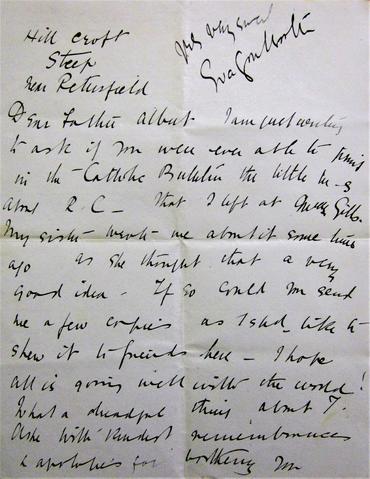 Hill Croft
Steep
near Petersfield
yrs very
Eva Gore Booth
Dear Father Albert I am just writing
to ask if you were ever able to print
in the Catholic Bulletin the little M-S
about R.C — that I left at Gills.
My sister wrote me about it some time
ago as she thought that a very
good idea — If so could you send
me a few copies as I shd like to
shew it to friends here — I hope
all is going well with the world!
What a dreadful thing about T.
Ashe With kindest remembrances
& apologies for bothering you